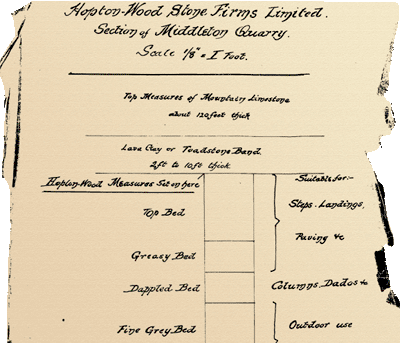 Hopton-Wood Stone Firms Limited.
Section of Middleton Quarry.
Scale 1/8" = 1 Foot.
Top Measures of Mountain Limestone
about 120 feet thick
Lava Clay or Toadstone Band.
2ft to 10ft thick
Hopton-Wood Measures Set on here
Suitable for:-
Top Bed
Steps. Landings,
Paving &c
Greasy Bed
Dappled Bed
Columns, Dados &c
Fine Grey Bed
Outdoor use